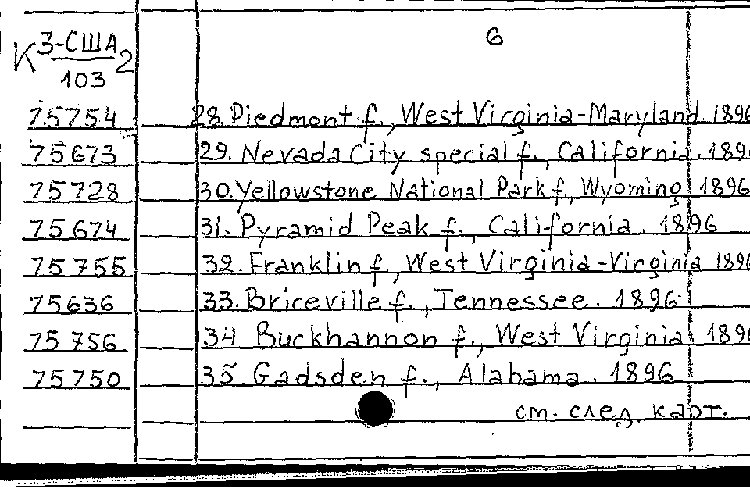 К 3-США 2 6
103
75754 28. Piedmont f., West Virginia-Maryland. 1896
75673 29. Nevada City special f., California. 1896
75728 30. Yellowstone National Park f., Wyoming 1896
75674 31. Pyramid Peak f., California. 1896
75755 32. Franklin f., West Virginia-Virginia 1896
75636 33. Briceville f., Tennessee. 1896
75756 34 Buckhannon f., West Virginia 1896
75750 35 Gadsden f., Alabama. 1896
см. след. карт.